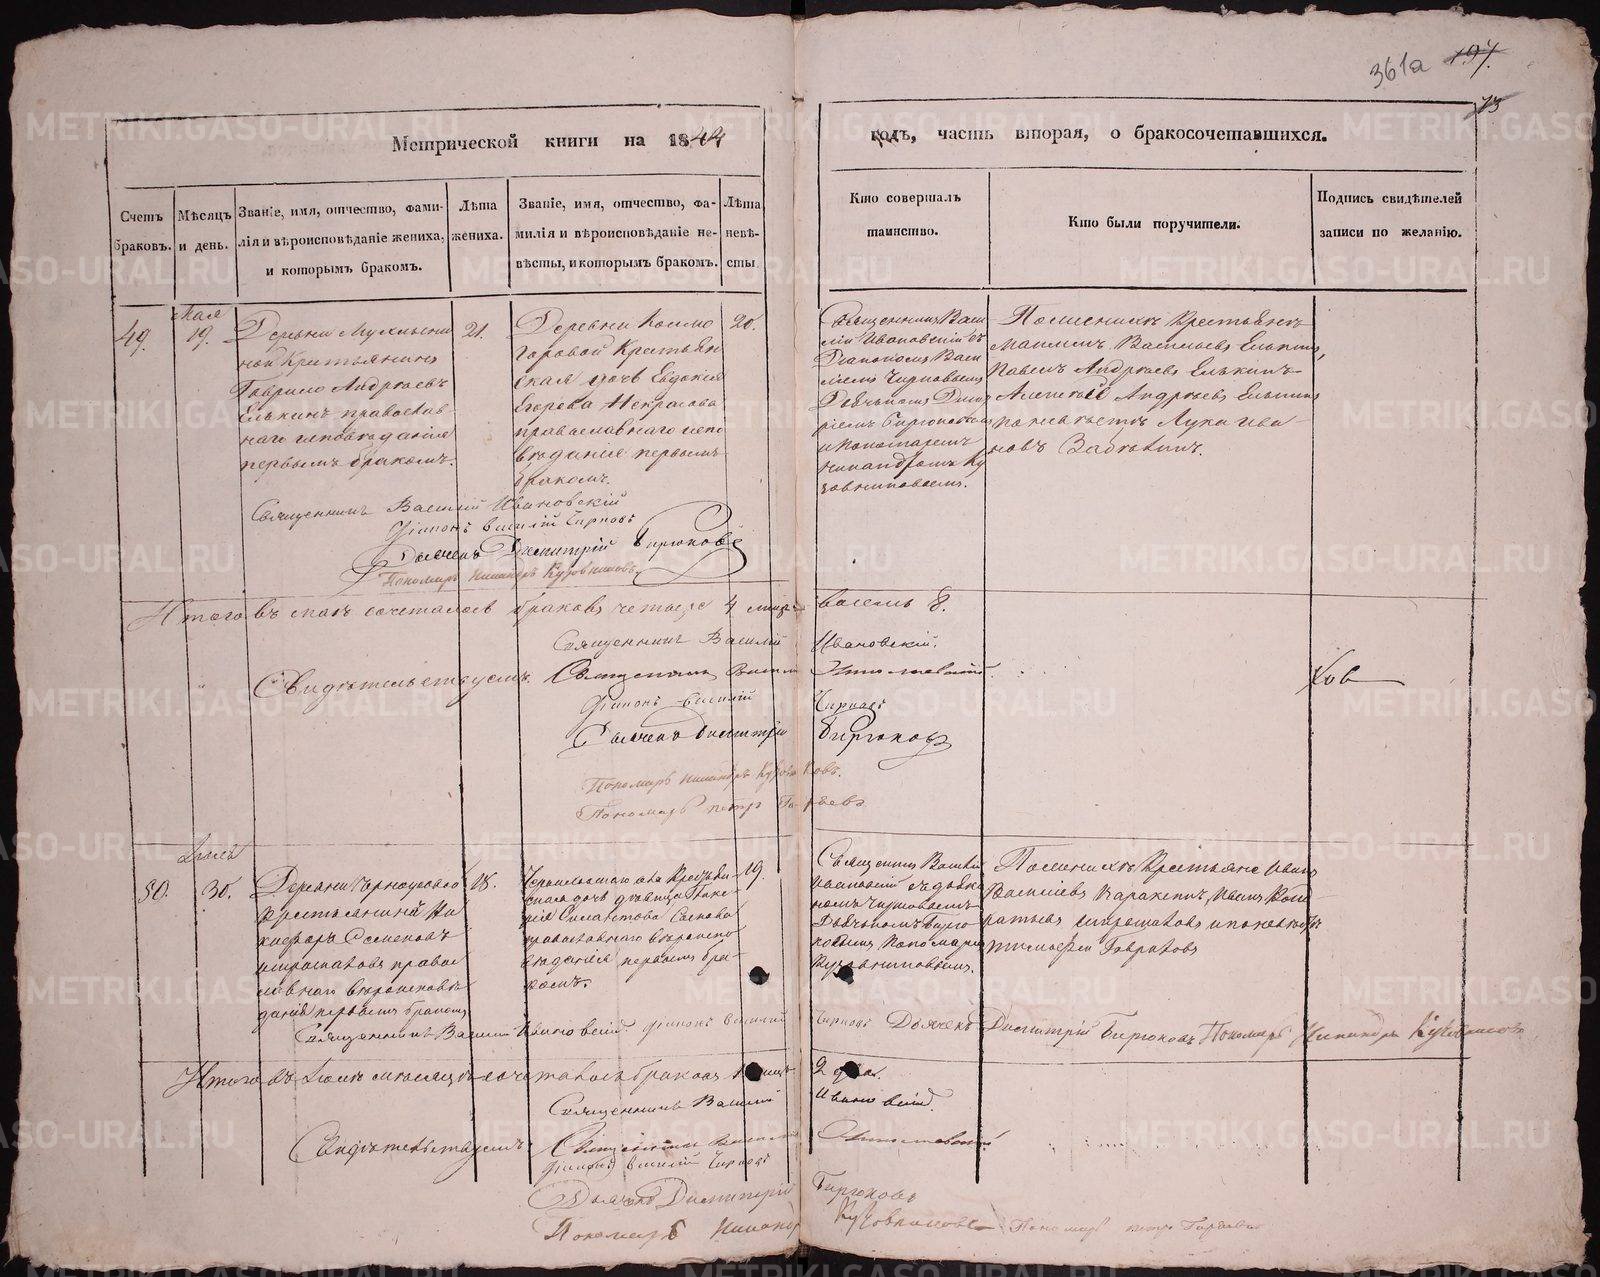 361а 197.
73
Метрической книги на 1844
годъ, часть вторая, о бракосочетавшихся.
Счетъ браковъ.
Мѣсяцъ и день.
Званіе, имя, отчество, фами-
лія и вѣроисповѣданіе жениха,
и которымъ бракомъ.
Лѣта жениха.
Званіе, имя, отчество, фа-
милія и вѣроисповѣданіе не-
вѣсты, и которымъ бракомъ.
Лѣта невѣ-
сты.
Кто совершалъ
таинство.
Кто были поручители.
Подпись свидѣтелей
записи по желанію.
49.
Мая
19.
Деревни
ной Крестьянинъ
Гаврило Андреевъ
Елькинъ православ-
наго исповѣданія
первымъ бракомъ.
21.
Деревни Космо
горовой Крестьян
ская дочь Евдокія
Егорова Некрасова
православнаго испо
вѣданія первымъ
бракомъ.
20.
Священникъ Васи
лій Ивановскій съ
Діакономъ Васи
ліемъ Чирковымъ
Дьячкомъ Дими
ріемъ Бирюковымъ
и Пономаремъ
Никандромъ Ку
зовниковымъ.
По женихѣ Крестьяне
Васильевъ Елькинъ,
Павелъ Андреевъ Елькинъ
Алексѣй Андреевъ Елькинъ
по невѣстѣ Лука Ива
новъ
Священникъ Василій Ивановскій
Діаконъ Василій Чирковъ
Дьячекъ Димитрій Бирюковъ
Пономарь Никандръ Кузовниковъ
Итого въ маѣ сочеталось браковъ четыре 4 лицъ восемь 8.
Священникъ Василій Ивановскій.
Свидѣтельствуемъ. Священникъ
Діаконъ Василій Чирковъ
Дьячекъ Димитрій Бирюковъ
Пономарь Никандръ Кузовниковъ.
Пономарь Петръ
50.
30.
Деревни
Крестьянинъ Ни
кифоръ Семеновъ
правос
лавнаго вѣроисповѣ
данія первымъ бракомъ
18.
села Крестьян
ская дочь дѣвица
православнаго вѣроиспо
вѣданія первымъ бра-
комъ.
19.
Священникъ Василій
Ивановскій съ діако
номъ Чирковымъ
Дьячкомъ Бирю
ковымъ Пономаремъ
Кузовниковымъ.
По женихѣ Крестьяне Иванъ
Васильевъ Иванъ Кон
ратьевъ и по невѣстѣ
Тимофей Гавриловъ
Священникъ Василій Ивановскій. Діаконъ Василій Чирковъ Дьячекъ Димитрій Бирюковъ Пономарь Никандръ Кузовниковъ
Итого въ мѣсяцѣ сочеталось браковъ 1 лицъ 2 два.
Священникъ Василій Ивановскій.
Свидѣтельствуемъ Священникъ
Діаконъ Василій Чирковъ
Дьячекъ Димитрій Бирюковъ
Пономарь Никандръ Кузовниковъ Пономарь Петръ
METRIKI.GASO-URAL.RU